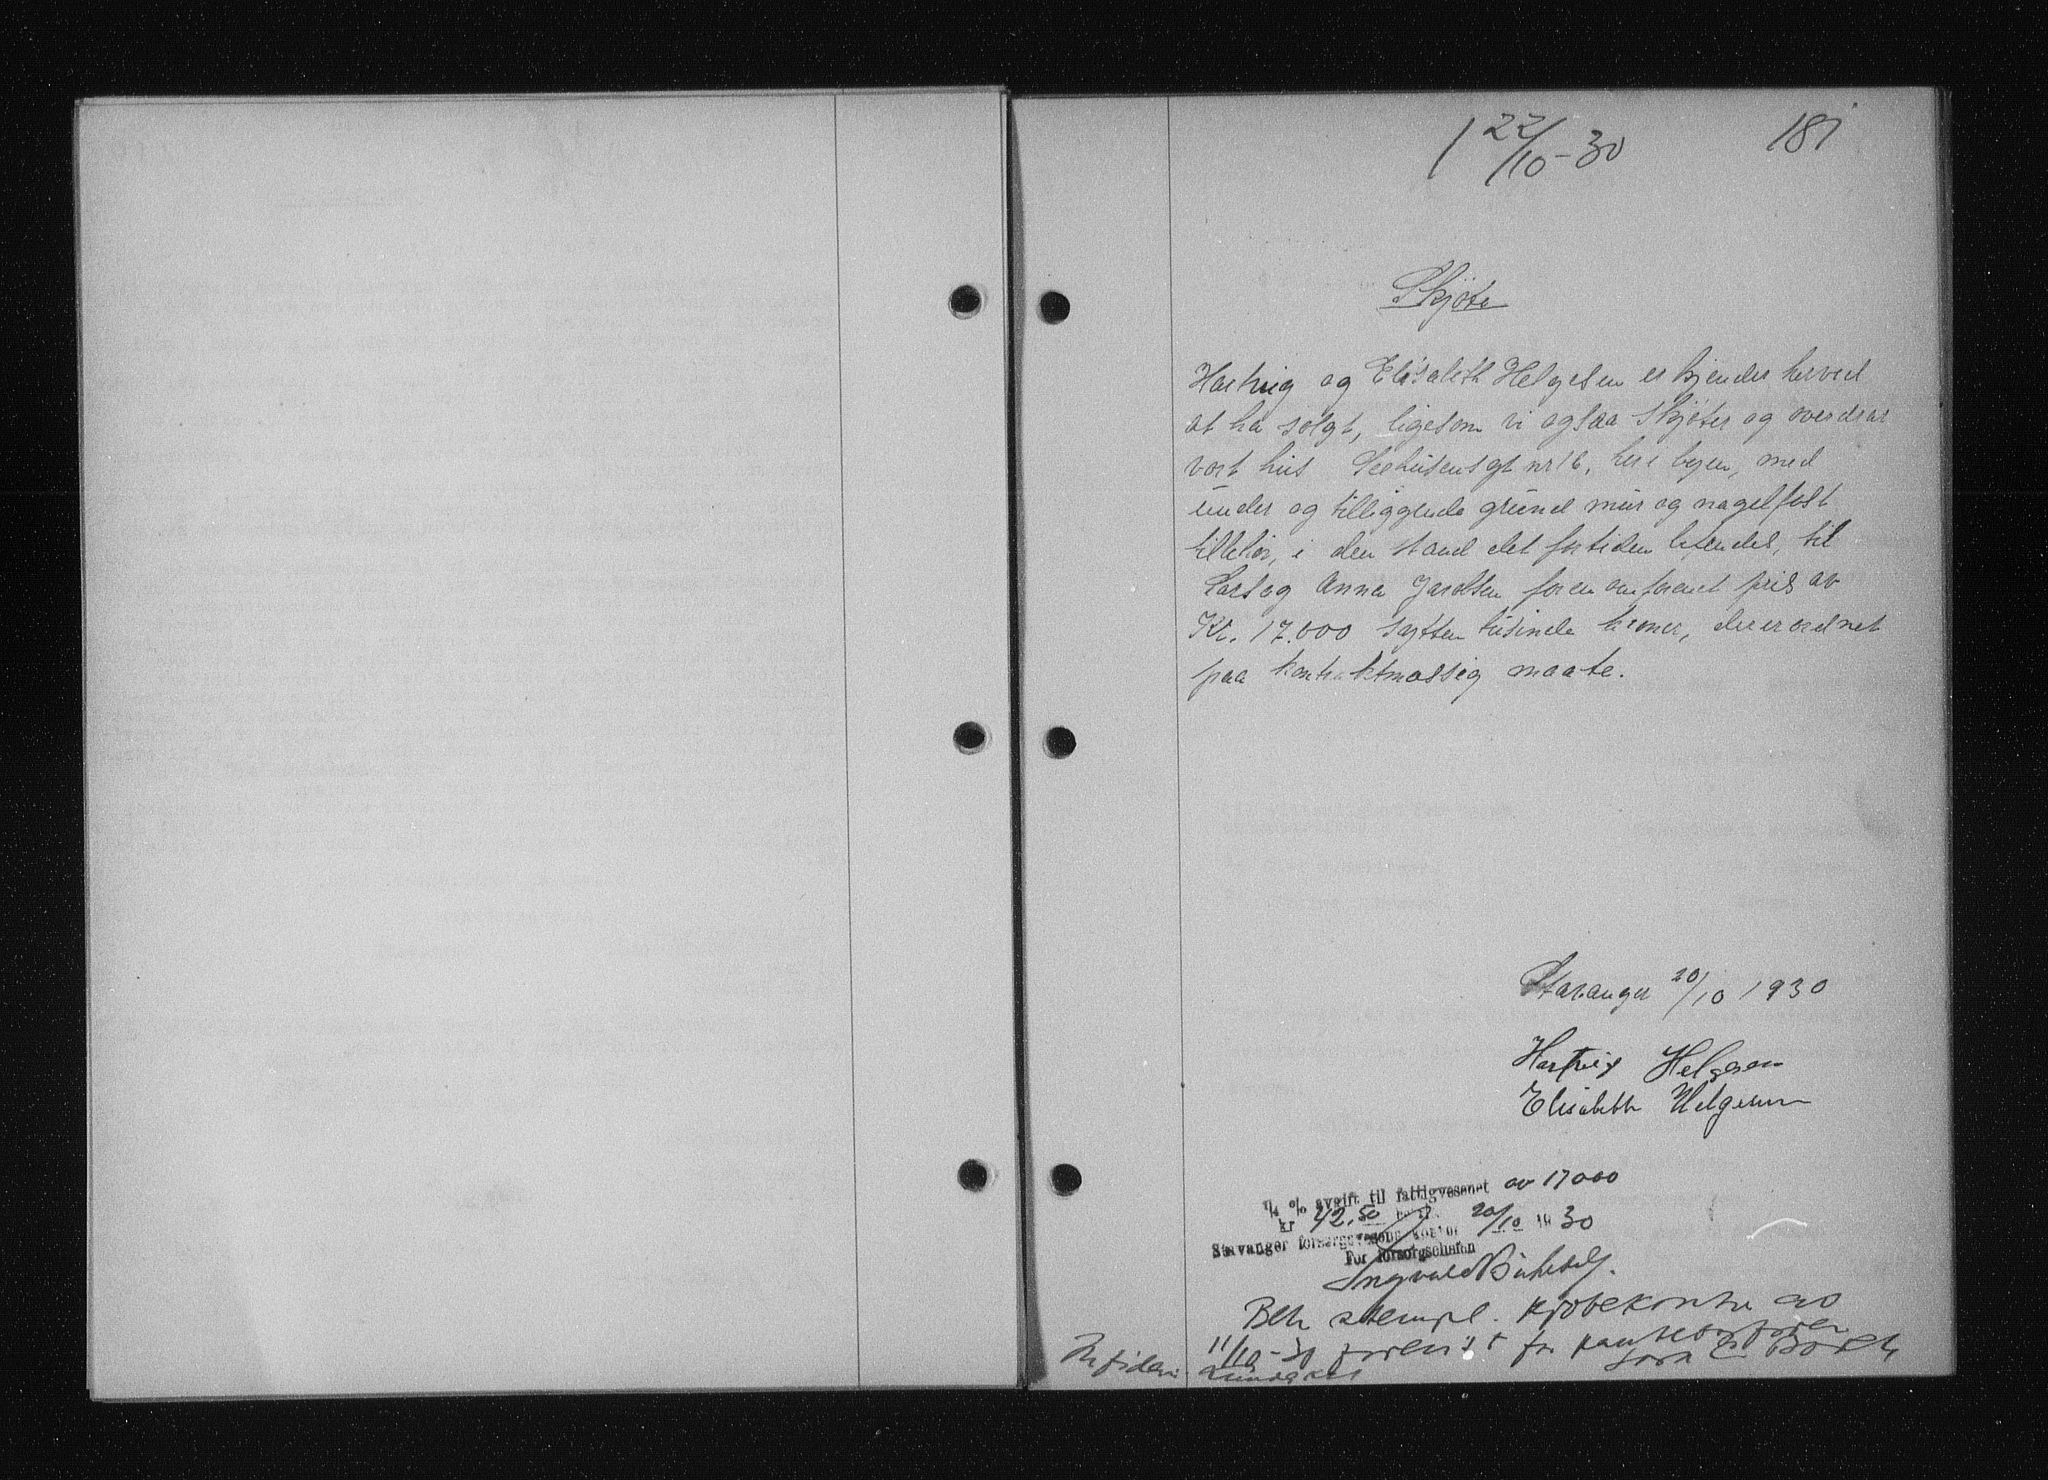 1 22/10-30
181
Skjøte
Hartvig og Elisabeth Helgesen erkjender herved
at ha solgt, ligesom vi ogsaa skjøter og overdrar
vort hus Seehusensgt nr 16, her i byen, med
under og tilliggende grund mur og nagelfast
tilbehør, i den stand det fortiden befindes, til
Lars og Anna Jacobsen for en omforenet pris av
Kr. 17.000 sytten tusinde kroner, der er ordnet
paa kontraktmæssig maate.
Stavanger 20/10 1930
Hartvig Helgesen
Elisabeth Helgesen
1/4 % avgift til fattigvesenet av 17000
kr 42,50 20/10 1930
Stavanger forsorgsvesens kontor
For forsorgschefen
Ingvald
Beh stempl. Kjøbekontr av
11/10-30 forevist for